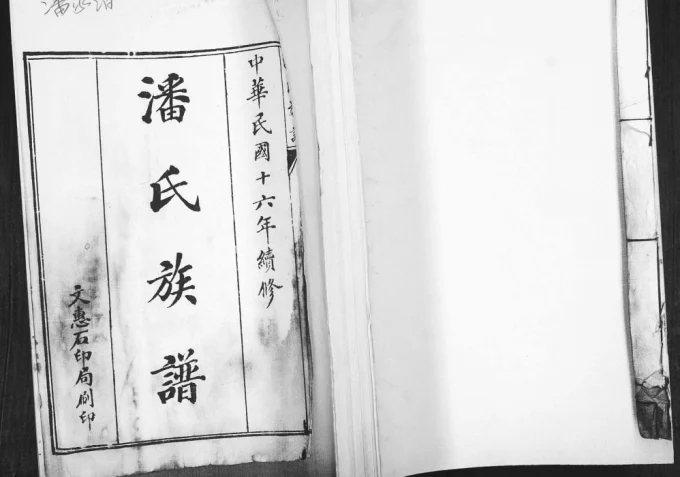 中華民國十六年續修
潘氏族譜
文惠石印局刷印